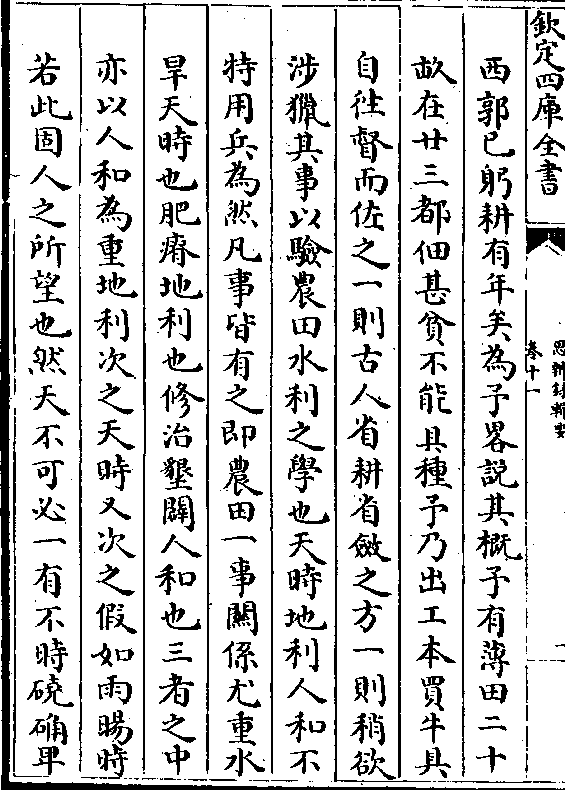 欽定四庫全書
思辨録輯要
卷十一
西郭已躬耕有年矣為予畧説其概予有薄田二十
畝在廿三都佃甚貧不能具種予乃出工本買牛具
自徃督而佐之一則古人省耕省斂之方一則稍欲
涉獵其事以驗農田水利之學也天時地利人和不
特用兵為然凡事皆有之即農田一事闗係尤重水
旱天時也肥瘠地利也修治墾闢人和也三者之中
亦以人和為重地利次之天時又次之假如雨暘時
若此固人之所望也然天不可必一有不時磽确卑